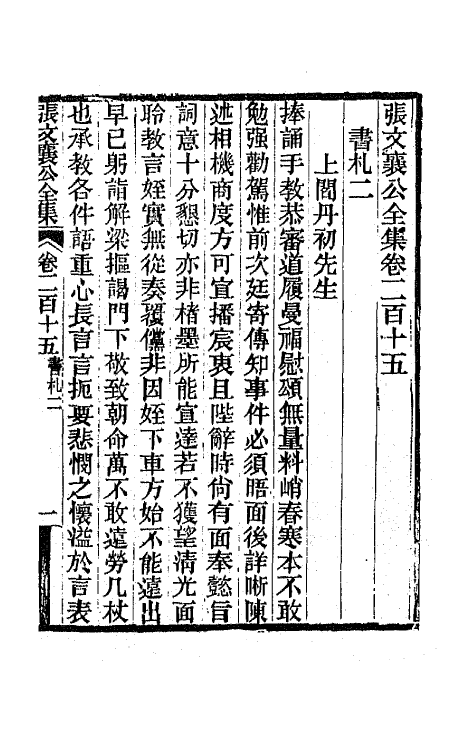 張文襄公全集卷二百十五
書札二
上閻丹初先生
捧誦手教恭審道履曼福慰頌無量料峭春寒本不敢
勉强勸駕惟前次廷寄傳知事件必須晤面後詳晰陳
述相機商度方可宣播宸衷且陛辭時尙有面奉懿旨
詞意十分懇切亦非楮墨所能宣達若不獲望清光面
聆教言姪實無從奏覆儻非因姪下車方始不能遠出
早已躬詣解梁摳謁門下敬致朝命萬不敢遠勞几杖
也承教各件語重心長言言扼要悲憫之懷溢於言表
張文襄公全集 卷二百十五 書札二 一